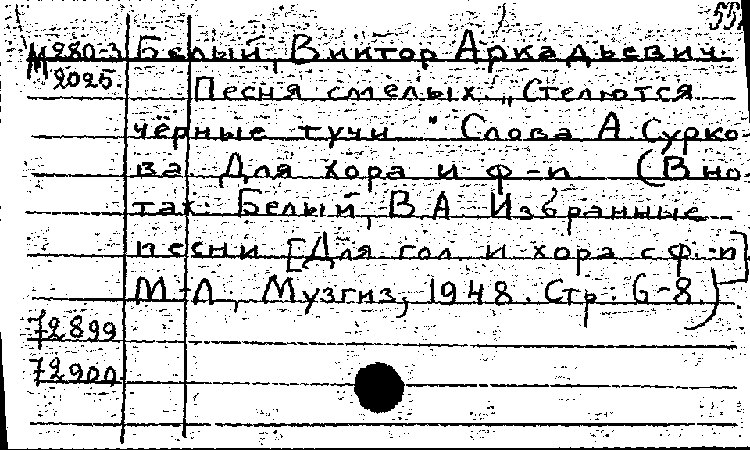 М280-3 Белый, Виктор Аркадьевич.
М2025. Песня смелых. „Стелются
чёрные тучи" Слова А Сурко-
ва Для хора и ф-п (В но-
тах: Белый, В А Избранные
песни [Для гол и хора с ф.-п]
М-Л, Музгиз, 1948. Стр. 6-8.)
72899
72900